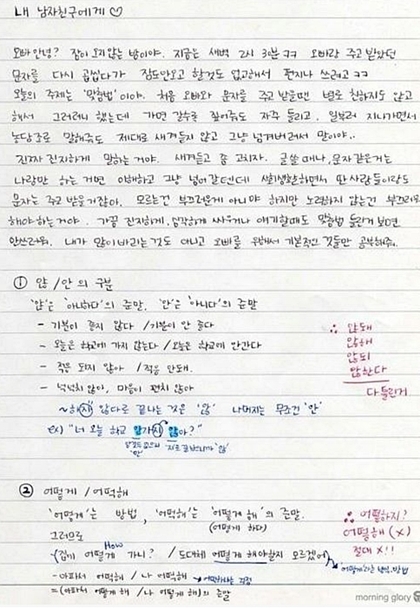 내 남자친구에게 ♡
오빠안녕? 잠이 오지 않는 밤이야. 지금은 새벽 2시 30분 ㅋㅋ 오빠랑 주고 받았던
문자를 다시 곱씹다가 잠도안오고 할것도 없고해서 편지나 쓰려고 ㅋㅋ
오늘의 주제는 '맞춤법'이야. 처음 오빠와 문자를 주고 받을땐 별로 친하지도 않고
해서 그러려니 했는데 가면 갈수록 짚어주도 자주 틀리고. 일부러 지나가면서
농담조로 말해줘도 제대로 새겨듣지 않고 그냥 넘겨버려서 말이야..
진짜 진지하게 말하는 거야. 새겨듣고 좀 고치자. 글쓸때나, 문자같은거는
나랑만 하는 거면 이해하고 그냥 넘어갈텐데 사회생활하면서 딴 사람들이랑도
문자는 주고 받을거잖아. 모르는건 부끄러운게 아니야 하지만 노력하지 않는건 부끄러워
해야하는거야. 가끔 진지하게, 심각하게 싸우거나 얘기할때도 맞춤법 틀린거 보면
안쓰러워. 내가 많이바라는것도 아니고 오빠를 위해서 기본적인 것들만 공부해줘.
① 않 / 안 의 구분
'않'은 '아니하다'의 준말. '안'은 '아니다'의 준말
- 기분이 좋지 않다 / 기분이 안 좋다
- 오늘은 학교에 가지 않는다 / 오늘은 학교에 안간다
- 적은 되지 않아 / 적은 안돼.
- 넉넉치 않아, 마음이 편치 않아
∴ 않돼
않해
않되
않한다
다 틀린거
~하지 않다로 끝나는 것은 '않' 나머지는 무조건 '안'
ex) "너 오늘 학교 안가지 않아?"
② 어떻게 / 어떡해
'어떻게'는 방법, '어떡해'는 '어떻게 해'의 준말.
(어떻게 하다)
그러므로
How
(집에 어떻게 가니? / 도대체 어떻게 해야할지 모르겠어)
- 아파서 어떡해 / 나 어떡해
=(아파서 어떻게 해 / 나 어떻게 해)의 준말
∴ 어떻하지?
어떻해 (x)
절대 x!!
morning glory